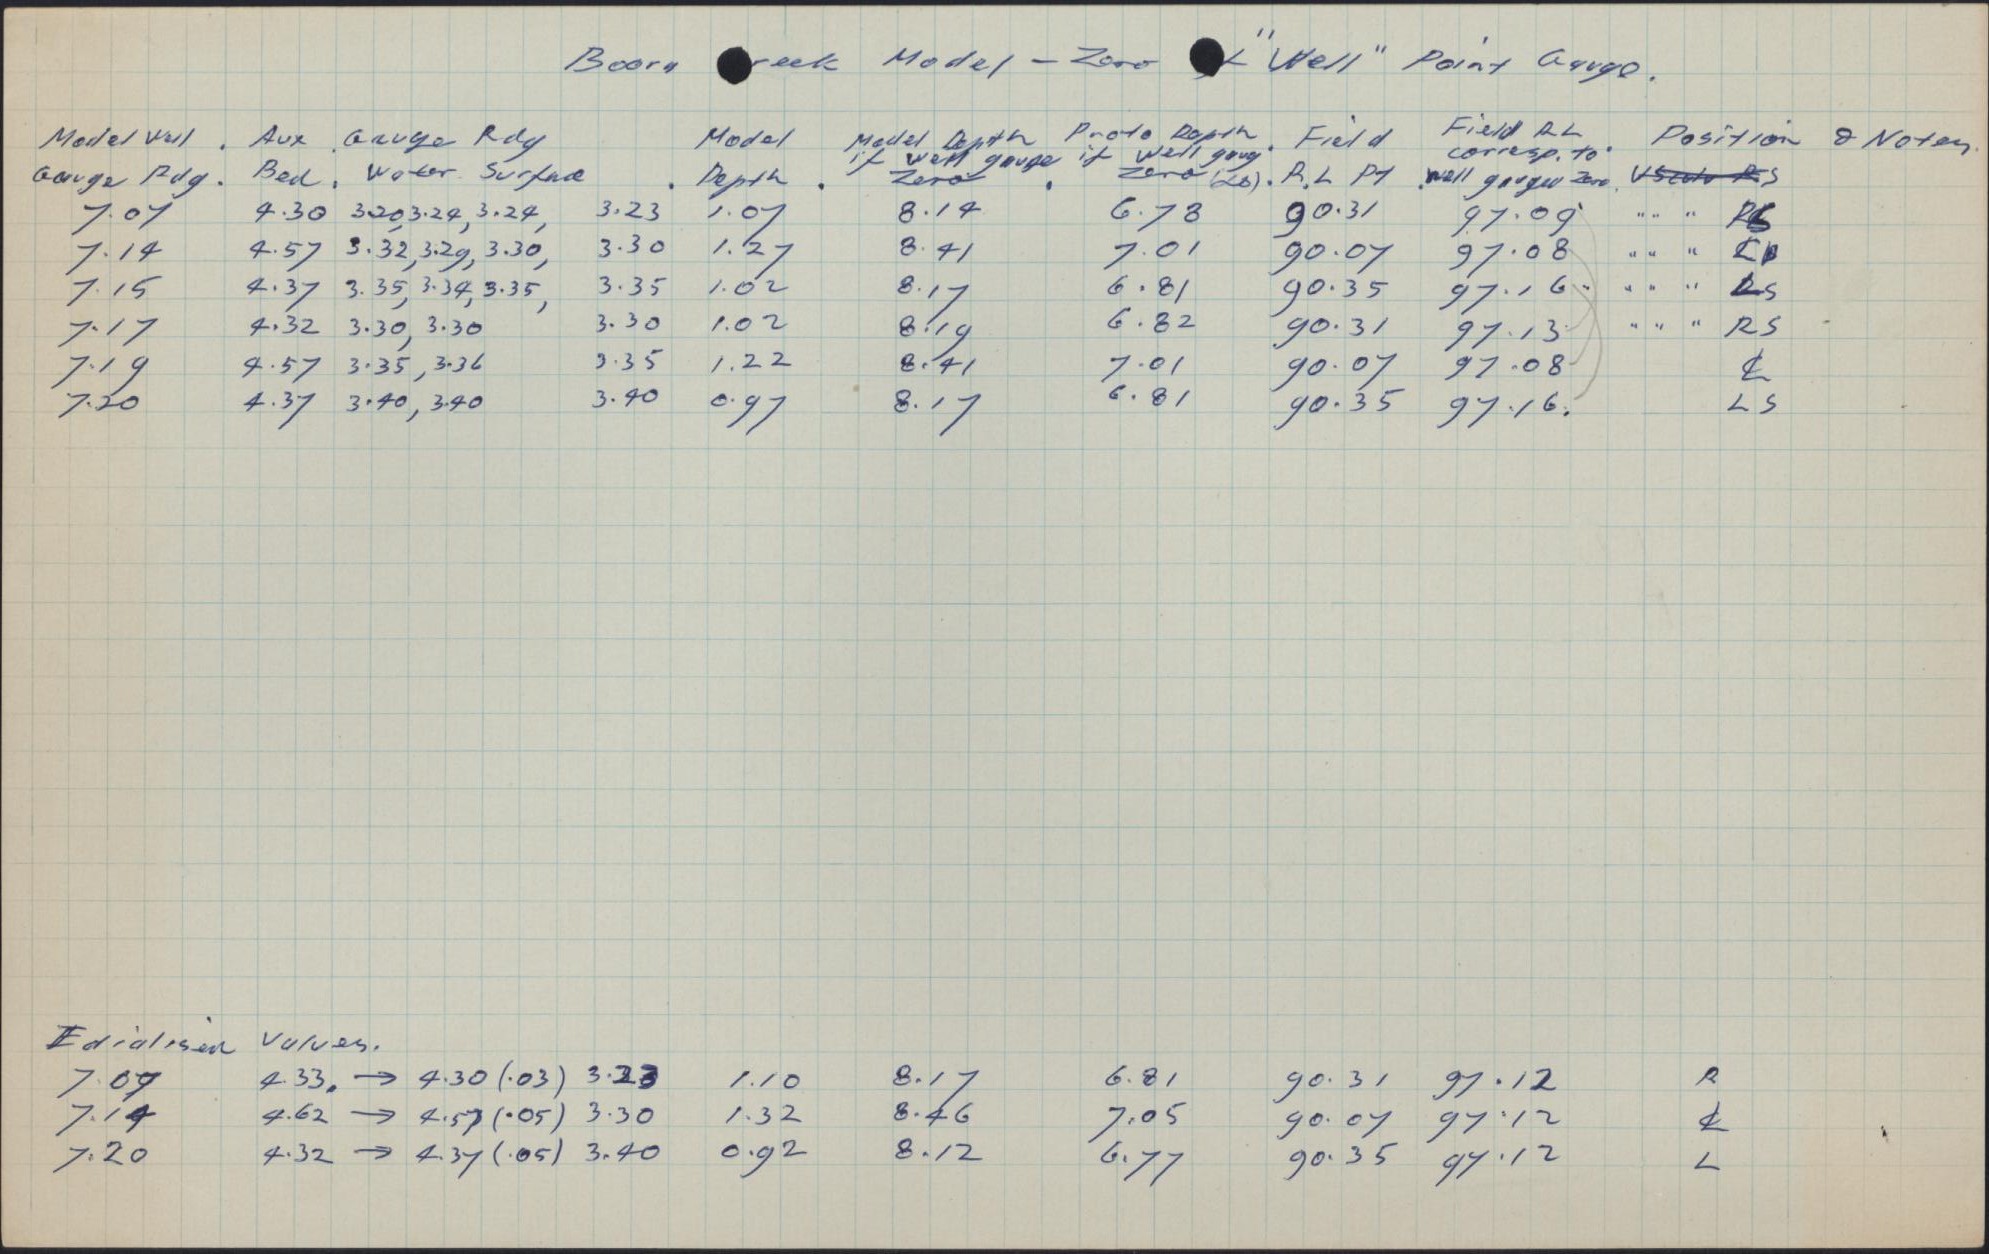 Boora reek Model - Zero "Well" Point Gauge.
Model Well . Aux . Gauge Rdg Model Model Depth Proto Depth . Field Field RL Position & Notes.
if Well gauge if Well gaug corresp. to.
Gauge Rdg . Bed . Water Surface . Depth . Zero . Zero . R.L Pt . Well gauge Zero .
7.07 4.30 3.20, 3.24, 3.24, 3.23 1.07 8.14 6.78 90.31 97.09 " " " RS
7.14 4.57 3.32, 3.29, 3.30, 3.30 1.27 8.41 7.01 90.07 97.08 " " " ℄
7.15 4.37 3.35, 3.34, 3.35, 3.35 1.02 8.17 6.81 90.35 97.16 " " " LS
7.17 4.32 3.30, 3.30 3.30 1.02 8.19 6.82 90.31 97.13 " " " RS
7.19 4.57 3.35, 3.36 3.35 1.22 8.41 7.01 90.07 97.08 ℄
7.20 4.37 3.40, 3.40 3.40 0.97 8.17 6.81 90.35 97.16. LS
Values.
7.07 4.33. → 4.30 (.03) 3.23 1.10 8.17 6.81 90.31 97.12 R
7.14 4.62 → 4.57 (.05) 3.30 1.32 8.46 7.05 90.07 97.12 ℄
7.20 4.32 → 4.37 (.05) 3.40 0.92 8.12 6.77 90.35 97.12 L